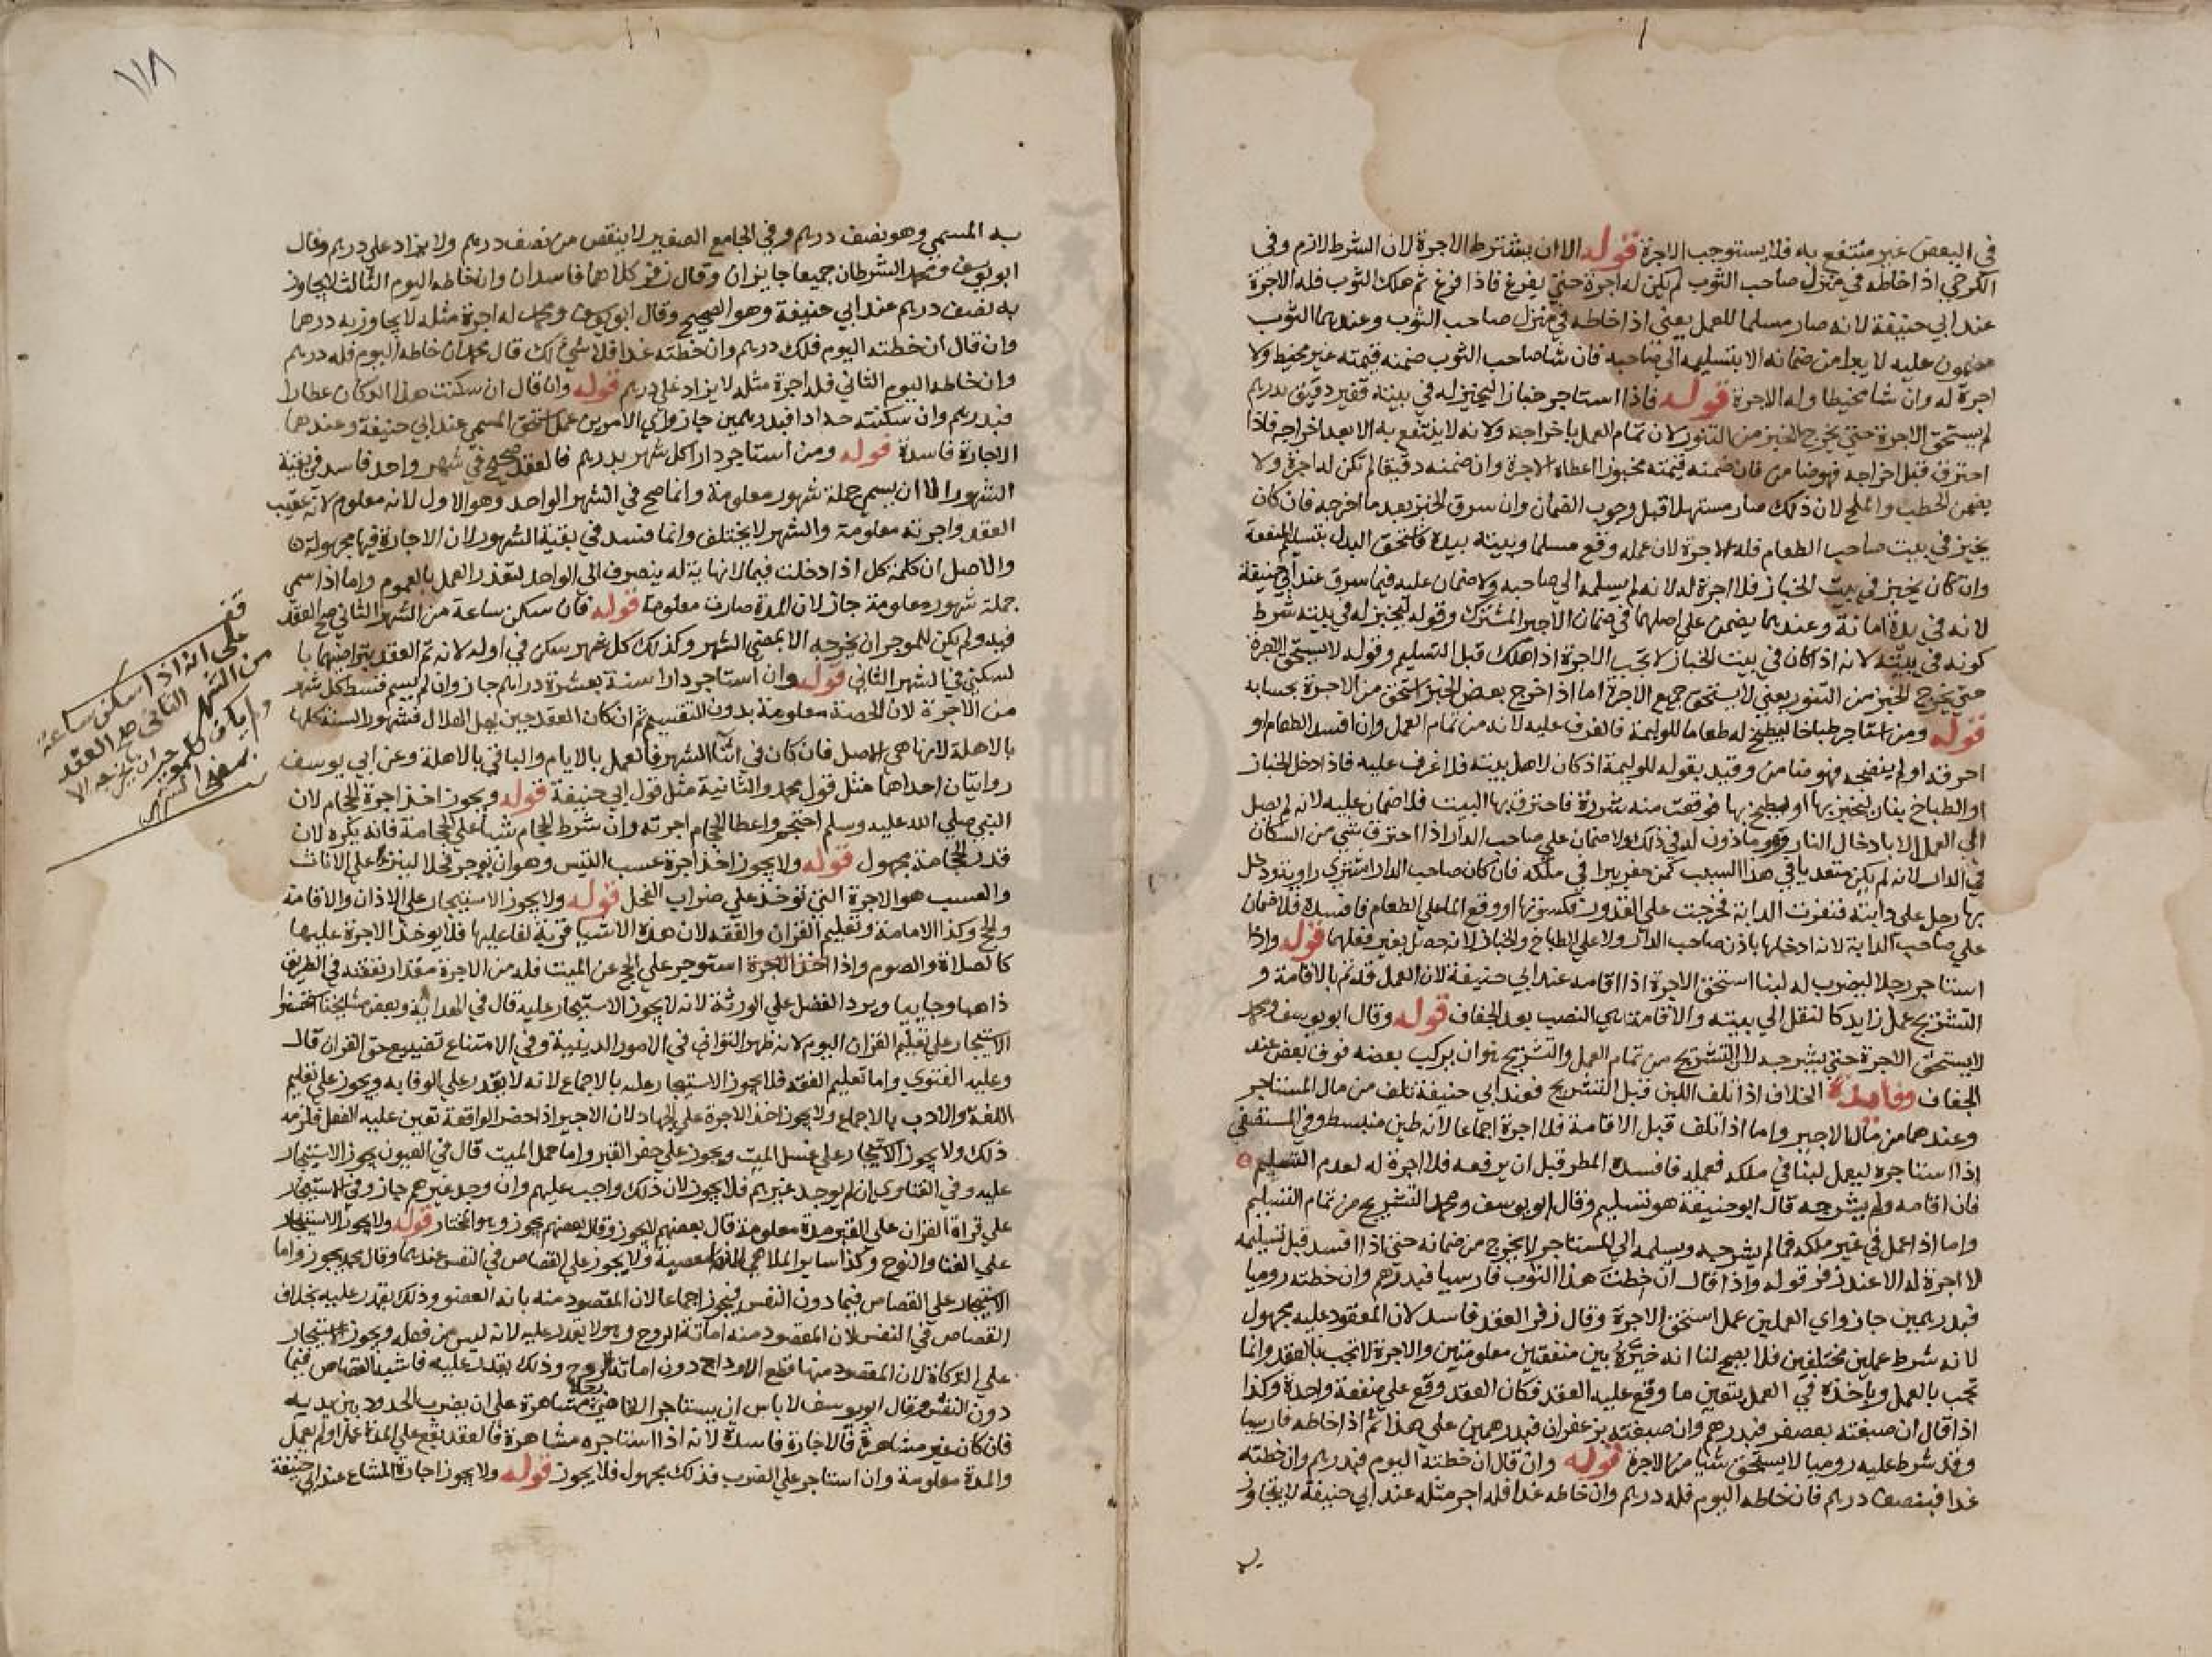 في البعض غير منتفع به فلا يستوجب الاجرة قوله الا ان يشترط الاجرة لان الشرط لازم وفي
الكرخي اذا خاطه في منزل صاحب الثوب لم يكن له اجرة حتى يفرغ فاذا فرغ ثم هلك الثوب فله الاجرة
عند ابي حنيفة لانه صار مسلما للعمل يعني اذا خاطه في منزل صاحب الثوب وعندهما الثوب
مضمون عليه لا يبرا من ضمانه الا بتسليمه الى صاحبه فان شا صاحب الثوب ضمنه قيمته غير مخيط ولا
اجرة له وان شا مخيطا وله الاجرة قوله فاذا استاجر خبازا ليخبز له في بيته قفيز دقيق بدرهم
لم يستحق الاجرة حتى يخرج الخبز من التنور لان تمام العمل باخراجه ولانه لا ينتفع به الا بعد اخراجه فاذا
احترق قبل اخراجه فهو ضامن فان ضمنه قيمته مخبوزا اعطاه الاجرة وان ضمنه دقيقا لم تكن له اجرة ولا
يضمن الحطب والملح لان ذلك صار مستهلكا قبل وجوب الضمان وان سرق الخبز بعد ما اخرجه فان كان
يخبز في بيت صاحب الطعام فله الاجرة لان عمله وقع مسلما وبيته بيده فاستحق البدل بتسليم المنفعة
وان كان يخبز في بيت الخباز فلا اجرة له لانه لم يسلمه الى صاحبه ولا ضمان عليه فيما سرق عند ابي حنيفة
لانه في يده امانة وعندهما يضمن على اصلهما في ضمان الاجير المشترك وقوله ليخبز له في بيته شرط
كونه في بيته لانه اذا كان في بيت الخباز لا تجب الاجرة اذا هلك قبل التسليم وقوله لا يستحق الاجرة
حتى يخرج الخبز من التنور يعني لا يستحق جميع الاجرة اما اذا اخرج بعض الخبز استحق من الاجرة بحسابه
قوله ومن استاجر طباخا ليطبخ له طعاما للوليمة فالغرف عليه لانه من تمام العمل وان افسد الطعام او
احرقه او لم ينضجه فهو ضامن وقيد بقوله للوليمة اذ كان لاهل بيته فلا غرف عليه فاذا دخل الخباز
او الطباخ بنار ليخبز بها او ليطبخ بها فوقعت منه شررة فاحترق بها البيت فلا ضمان عليه لانه لم يصل
الى العمل الا بادخال النار وهو ماذون له في ذلك ولا ضمان على صاحب الدار اذا احترق شي من السكان
في الدار لانه لم يكن متعديا في هذا السبب كمن حفر بيرا في ملكه فان كان صاحب الدار اشترى راوية ودخل
بها رجل على دابته فنفرت الدابة فخرجت على القدور فكسرتها او وقع الما على الطعام فافسده فلا ضمان
على صاحب الدابة لانه ادخلها باذن صاحب الدار ولا على الطباخ والخباز لانه حصل بغير فعلهما قوله واذا
استاجر رجلا ليضرب له لبنا استحق الاجرة اذا اقامه عند ابي حنيفة لان العمل قد تم بالاقامة و
التشريج عمل زايد كالنقل الى بيته والاقامة هي النصب بعد الجفاف قوله وقال ابو يوسف ومحمد
لا يستحق الاجرة حتى يشرجه لان التشريج من تمام العمل والتشريج هو ان يركب بعضه فوق بعض عند
الجفاف وفايدة الخلاف اذا تلف اللبن قبل التشريج فعند ابي حنيفة تلف من مال المستاجر
وعندهما من مال الاجير واما اذا تلف قبل الاقامة فلا اجرة اجماعا لانه طين منبسط وفي المستصفى
اذا استاجره ليعمل لبنا في ملكه فعمله فافسده المطر قبل ان يرفعه فلا اجرة له لعدم التسليم
فان اقامه ولم يشرجه قال ابو حنيفة هو تسليم وقال ابو يوسف ومحمد التشريج من تمام التسليم
واما اذا عمل في غير ملكه فما لم يشرجه ويسلمه الى المستاجر لا يخرج من ضمانه حتى اذا افسد قبل تسليمه
لا اجرة له الا عند زفر قوله واذا قال ان خطت هذا الثوب فارسيا فبدرهم وان خطته روميا
فبدرهمين جاز واي العملين عمل استحق الاجرة وقال زفر العقد فاسد لان المعقود عليه مجهول
لانه شرط عملين مختلفين فلا يصح لنا انه خيره بين منفعتين معلومتين والاجرة لا تجب بالعقد وانما
تجب بالعمل وباخذه في العمل يتعين ما وقع عليه العقد فكان العقد وقع على منفعة واحدة وكذا
اذا قال ان صبغته بعصفر فبدرهم وان صبغته بزعفران فبدرهمين على هذا ثم اذا خاطه فارسيا
وقد شرط عليه روميا لا يستحق شيا من الاجرة قوله وان قال ان خطته اليوم فبدرهم وان خطته
غدا فبنصف درهم فان خاطه اليوم فله درهم وان خاطه غدا فله اجر مثله عند ابي حنيفة لا يتجاوز
به
١١٨
به المسمى وهو نصف درهم وفي الجامع الصغير لا ينقص من نصف درهم ولا يزاد على درهم وقال
ابو يوسف ومحمد الشرطان جميعا جايزان وقال زفر كلاهما فاسدان وان خاطه اليوم الثالث لا يجاوز
به نصف درهم عند ابي حنيفة وهو الصحيح وقال ابو يوسف ومحمد له اجرة مثله لا يجاوز به درهما
وان قال ان خطته اليوم فلك درهم وان خطته غدا فلا شي لك قال محمد ان خاطه اليوم فله درهم
وان خاطه اليوم الثاني فله اجرة مثله لا يزاد على درهم قوله وان قال ان سكنت هذا الدوكان عطارا
فبدرهم وان سكنته حدادا فبدرهمين جاز واي الامرين عمل استحق المسمى عند ابي حنيفة وعندهما
الاجارة فاسدة قوله ومن استاجر دارا كل شهر بدرهم فالعقد صحيح في شهر واحد فاسد في بقية
الشهور الا ان يسمي جملة شهور معلومة وانما صح في الشهر الواحد وهو الاول لانه معلوم لانه عقيب
العقد واجرته معلومة والشهر لا يختلف وانما فسد في بقية الشهور لان الاجارة فيها مجهولة
والاصل ان كلمة كل اذا دخلت فيما لا نهاية له ينصرف الى الواحد لتعذر العمل بالعموم واما اذا سمى
جملة شهور معلومة جاز لان المدة صارت معلومة قوله فان سكن ساعة من الشهر الثاني صح العقد
فيه ولم يكن للموجر ان يخرجه الا بمضي الشهر وكذلك كل شهر سكن في اوله لانه تم العقد بتراضيهما با
لسكنى في الشهر الثاني قوله وان استاجر دارا سنة بعشرة دراهم جاز وان لم يسم قسط كل شهر
من الاجرة لان الحصة معلومة بدون التقسيم ثم ان كان العقد حين يهل الهلال فشهور السنة كلها
بالاهلة لانها هي الاصل فان كان في اثنا الشهر فالعمل بالايام والباقي بالاهلة وعن ابي يوسف
روايتان احداهما مثل قول محمد والثانية مثل قول ابي حنيفة قوله ويجوز اخذ اجرة الحجام لان
النبي صلى الله عليه وسلم احتجم واعطا الحجام اجرته وان شرط الحجام شيا على الحجامة فانه يكره لان
قدر الحجامة مجهول قوله ولا يجوز اخذ اجرة عسب التيس وهو ان يوجر فحلا لينزو على الاناث
والعسب هو الاجرة التي توخذ على ضراب الفحل قوله ولا يجوز الاستيجار على الاذان والاقامة
والحج وكذا الامامة وتعليم القران والفقه لان هذه الاشيا قربة لفاعليها فلا يوخذ الاجرة عليها
كالصلاة والصوم واذا اخذ الاجرة استوجر على الحج عن الميت فله من الاجرة مقدار نفقته في الطريق
ذاهبا وجاييا ويرد الفضل على الورثة لانه لا يجوز الاستيجار عليه قال في الهداية وبعض مشايخنا استحسنوا
الاستيجار على تعليم القران اليوم لانه ظهر التواني في الامور الدينية وفي الامتناع تضييع حق القران قال
وعليه الفتوى واما تعليم الفقه فلا يجوز الاستيجار عليه بالاجماع لانه لا يقدر على الوفا به ويجوز على تعليم
اللغة والادب بالاجماع ولا يجوز اخذ الاجرة على الجهاد لان الاجير اذا حضر الواقعة تعين عليه الفعل فلزمه
ذلك ولا يجوز الاستيجار على غسل الميت ويجوز على حفر القبر واما حمل الميت قال في العيون يجوز الاستيجار
عليه وفي الفتاوى ان لم يوجد غيرهم فلا يجوز لان ذلك واجب عليهم وان وجد غيرهم جاز وفي الاستيجار
على قراة القران على القبر مدة معلومة قال بعضهم لا يجوز وقال بعضهم يجوز وهو المختار قوله ولا يجوز الاستيجار
على الغنا والنوح وكذا ساير الملاهي لانه معصية ولا يجوز على القصاص في النفس عندهما وقال محمد يجوز واما
الاستيجار على القصاص فيما دون النفس فيجوز اجماعا لان المقصود منه ابانة العضو وذلك يقدر عليه بخلاف
القصاص في النفس لان المقصود منه اماتة الروح وهو لا يقدر عليه لانه ليس من فعله ويجوز الاستيجار
على الزكاة لان المقصود منها قطع الاوداج دون اماتة الروح وذلك يقدر عليه فاشبه القصاص فيما
دون النفس وقال ابو يوسف لا باس ان يستاجر القاضي رجلا مشاهرة على ان يضرب الحدود بين يديه
فان كان غير مشاهرة فالاجارة فاسدة لانه اذا استاجره مشاهرة فالعقد يقع على المدة عمل او لم يعمل
والمدة معلومة وان استاجر على الضرب فذلك مجهول فلا يجوز قوله ولا يجوز اجارة المشاع عند ابي حنيفة
قف
على انه اذا سكن ساعة
من الشهر الثاني صح العقد
ولم يكن للموجر ان يخرجه الا
بمضي الشهر